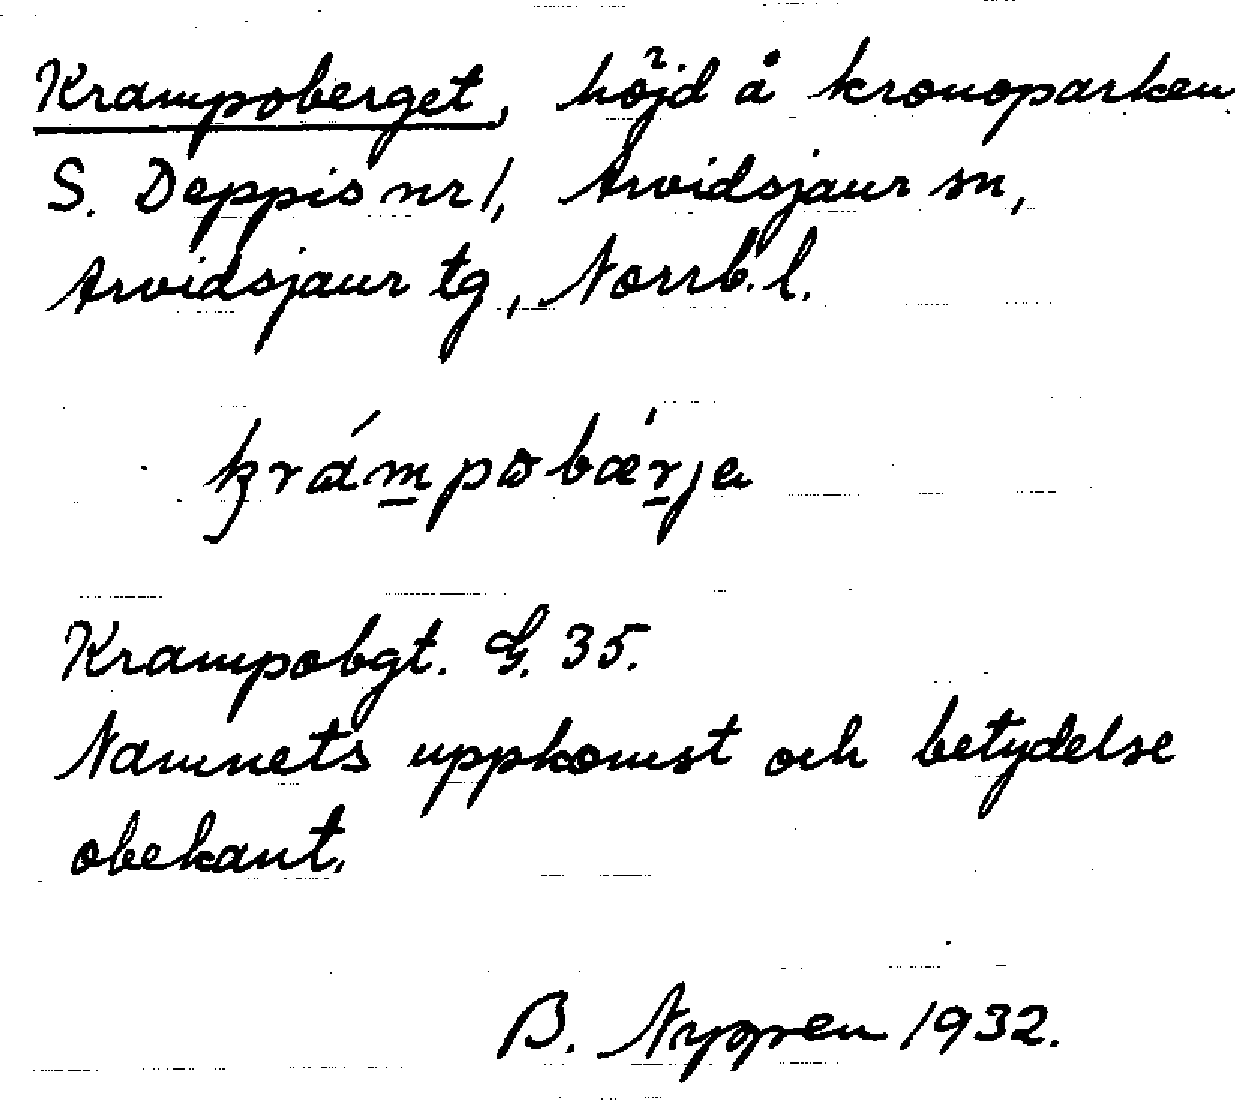 Krampoberget, höjd å kronoparken
S. Deppis nr 1, Arvidsjaur sn,
Arvidsjaur tg, Norrb. l.
krámpobǽrja
Krampobgt. G. 35.
Namnets uppkomst och betydelse
obekant.
B. Nygren 1932.